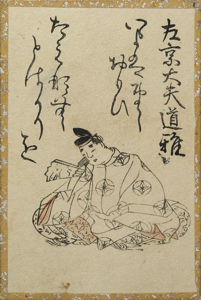 左京大夫道雅
いまはたゝ
おもひ
たえなむ
とはかり
を